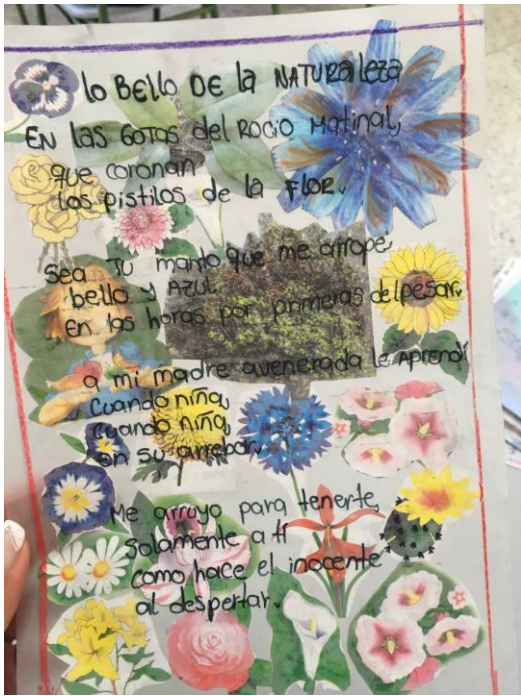 lo BEllo DE la NATURAleza
EN las GOTAS del ROCIO MATINAL,
que coronan
los pistilos de la FLOR.
Sea Tu manto que me arrope
bello y AZUL
En las horas por primeras del pesar.
a mi madre avenerada le APRENDÍ
cuando niña,
cuando niña,
en su arrebol.
Me arruyo para tenerte
solamente a tí
como hace el inocente
al despertar.